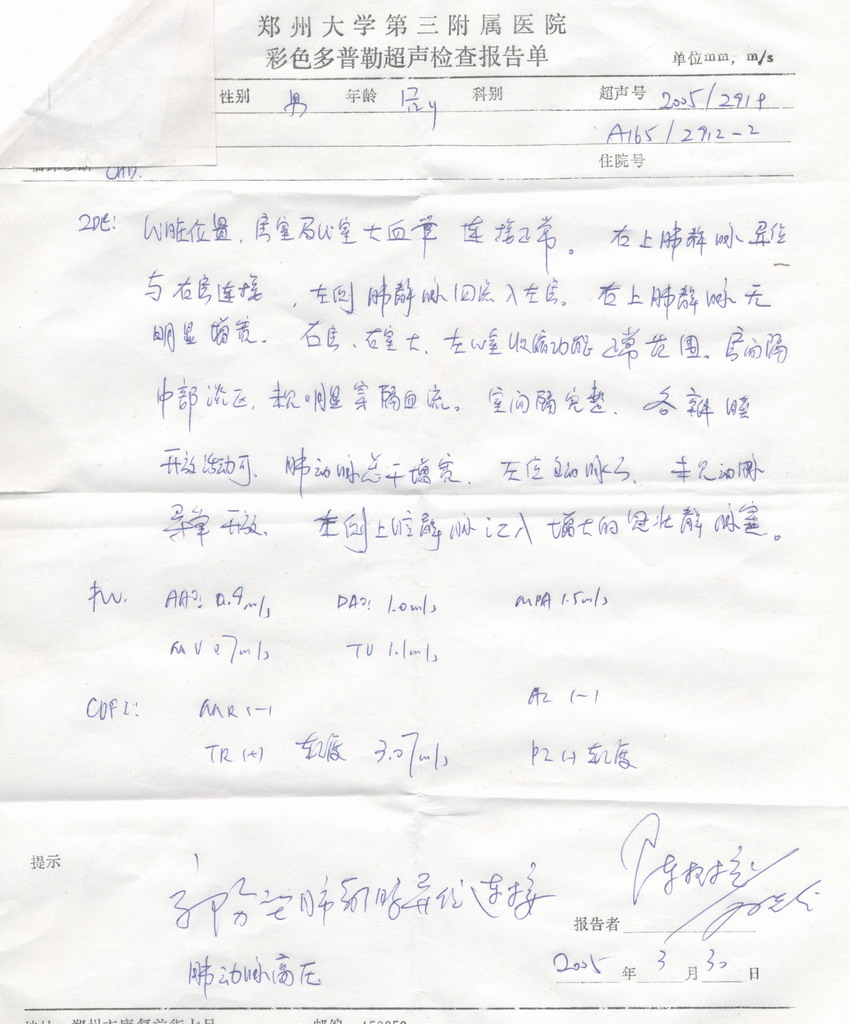 郑州大学第三附属医院
彩色多普勒超声检查报告单 单位mm，m/s
性别 男 年龄 科别 超声号 2005/2919
A165/2912-2
住院号
CHD.
2DE: 心脏位置，房室及心室大血管连接正常。右上肺静脉异位
与右房连接，左侧肺静脉回流入左房。右上肺静脉无
明显增宽。右房、右室大，左心室收缩功能正常范围。房间隔
中部 未见明显穿隔血流。室间隔完整，各瓣膜
开放活动可，肺动脉总干增宽，左位主动脉弓，未见动脉
导管开放，左侧上腔静脉汇入增大的冠状静脉窦。
PW: 0.9m/s 1.0m/s MPA 1.5m/s
MV 0.7m/s TV 1.1m/s
CDFI: MR (-) AR (-)
TR (+) 轻度 3.07m/s PR (+) 轻度
提示
部分型肺静脉异位连接
报告者
肺动脉高压
2005 年 3 月 30 日